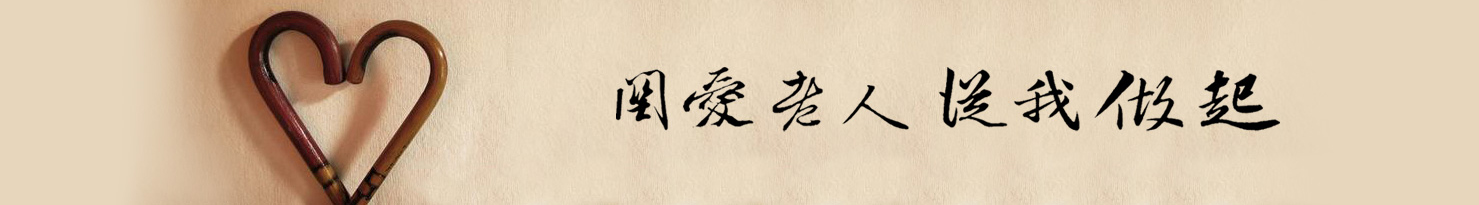 関愛老人 從我做起